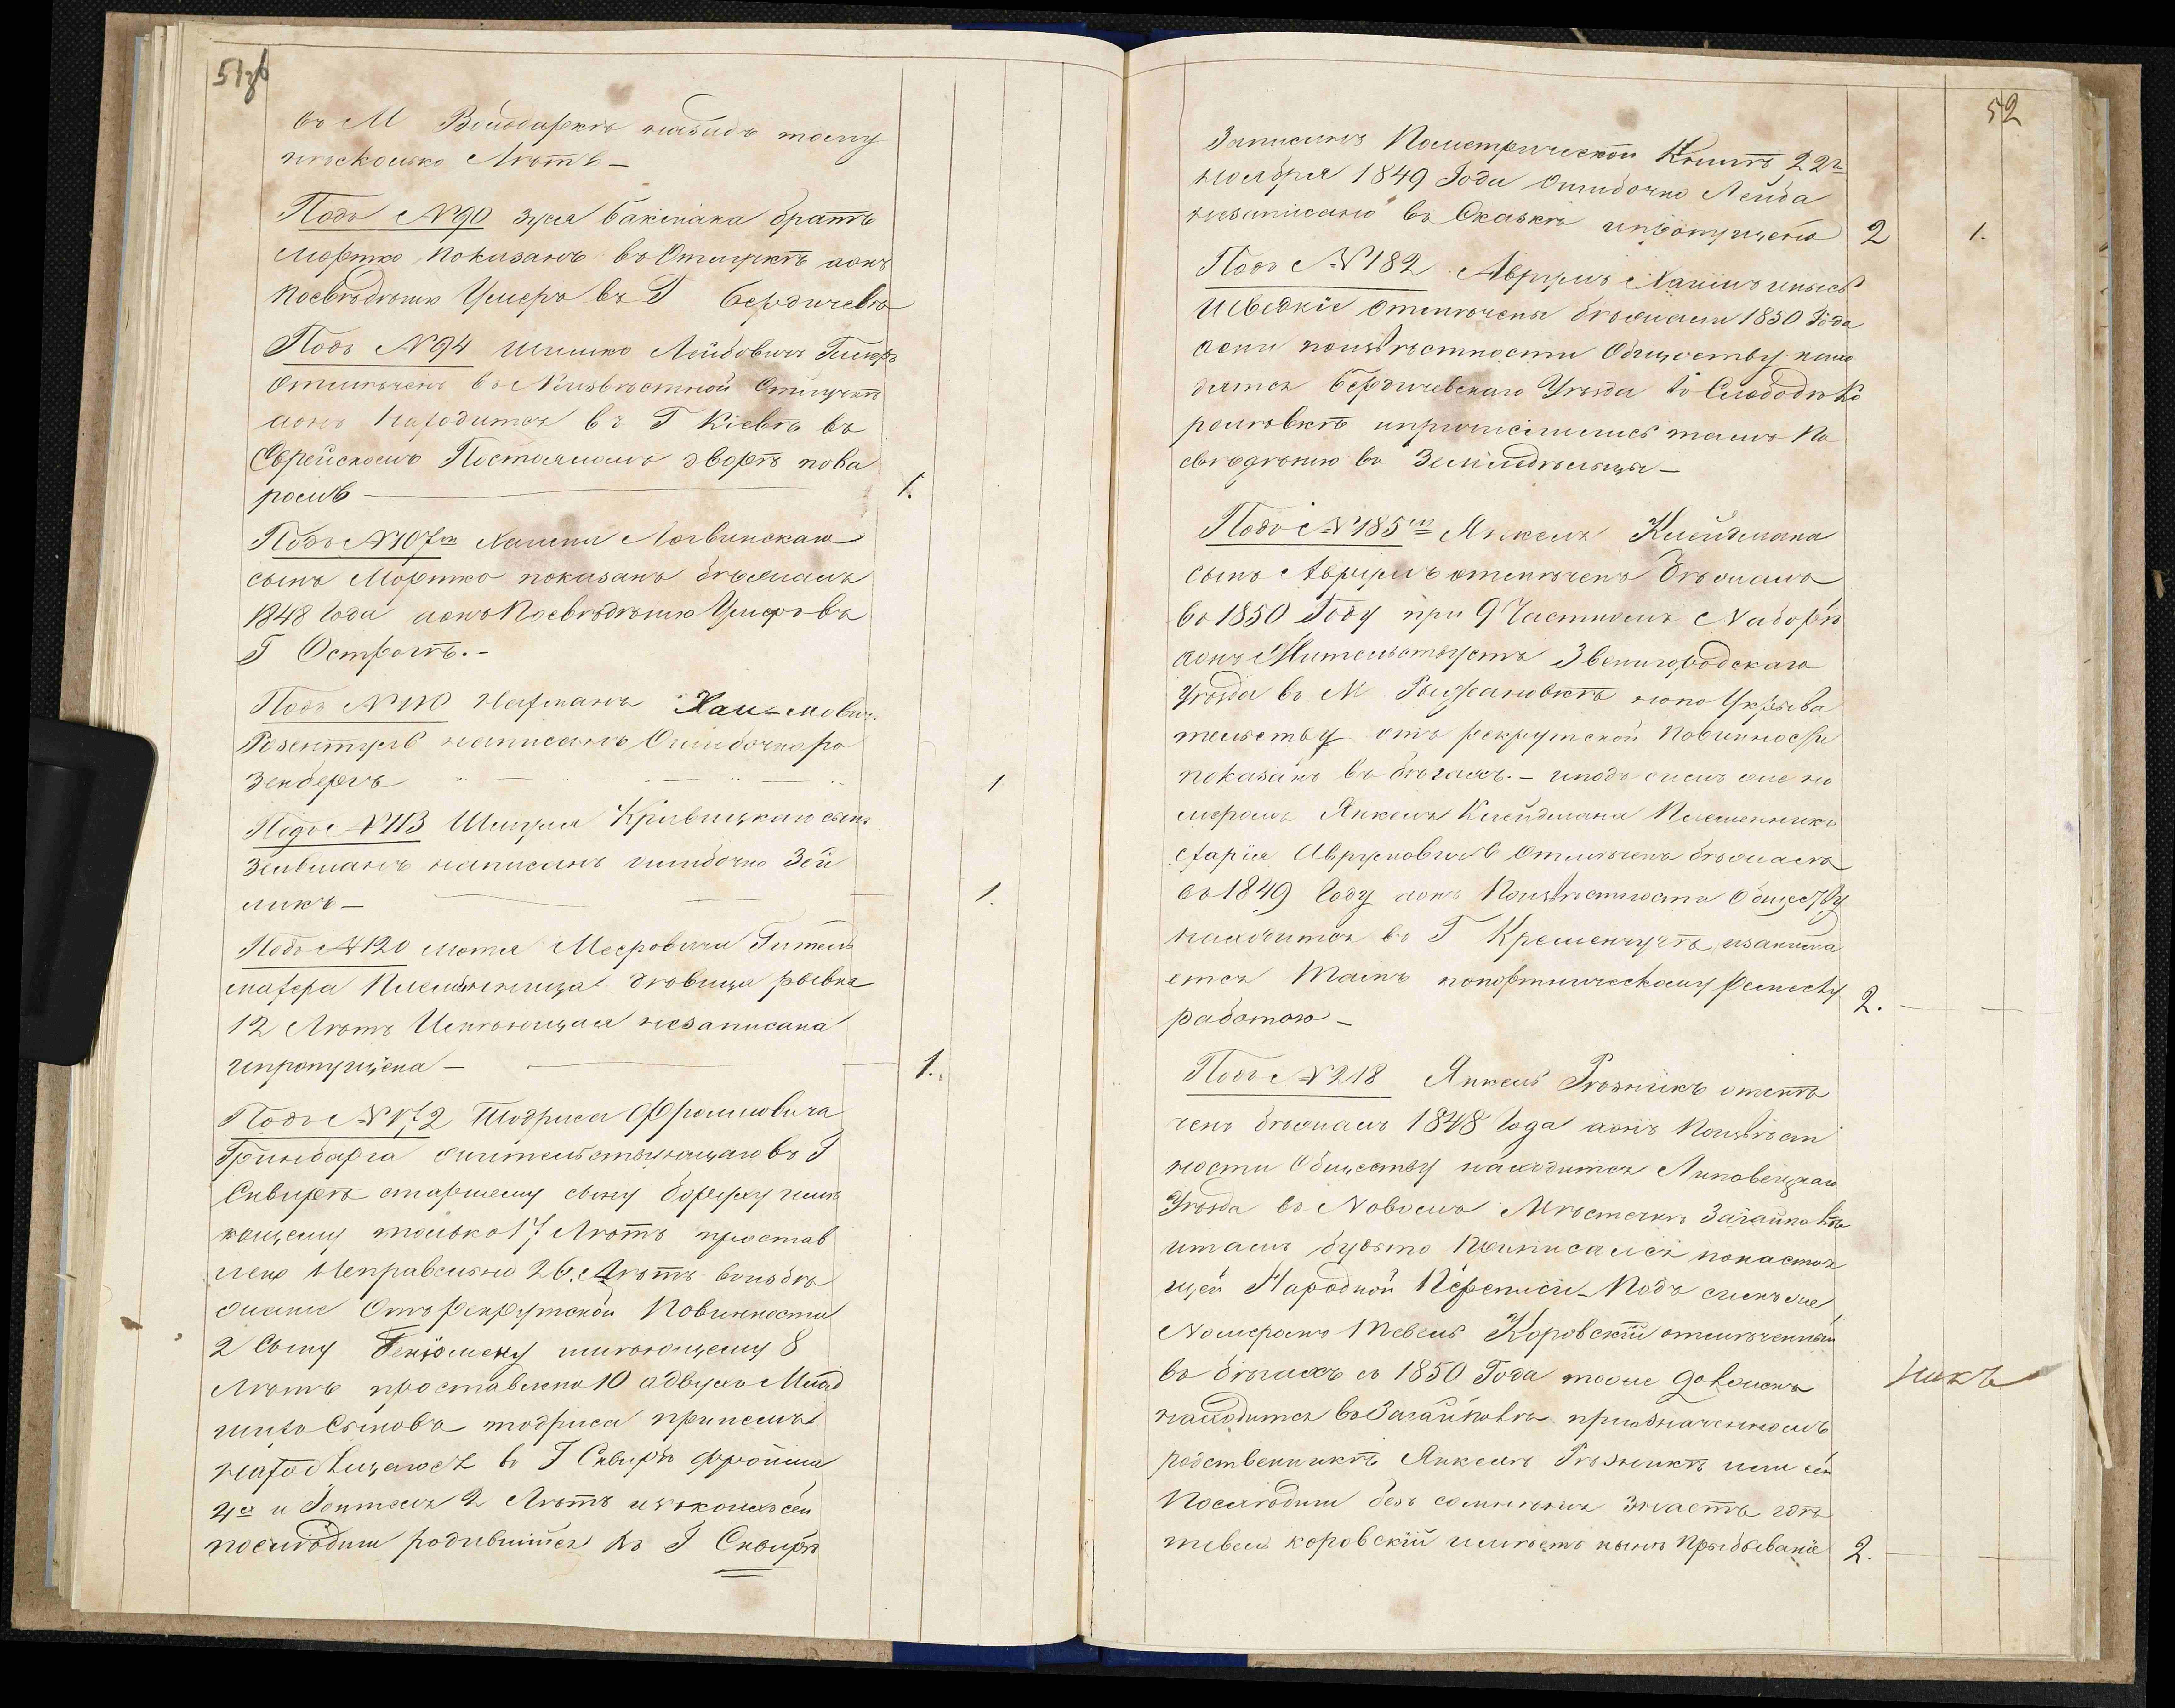 51зб
въ М Володаркѣ назадъ тому
нѣсколько Лѣтъ –
Подъ №90 Зуся бакмана братъ
Мортко показанъ въ Отлучкѣ аонъ
посвѣдѣнию Умеръ въ Г Бердичевѣ
Подъ №94 Шлиомко Лейбовичъ
отмѣченъ въ Неизвѣстной Отлучкѣ
аонъ находится въ Г Кіевѣ въ
Еврейскомъ Постояломъ дворѣ пова
ромъ – 1.
Подъ №107м Хаима Логвинскаго
сынъ Мортко показанъ бѣжалъ
1848 года аонъ Посвѣдѣнию Умеръ въ
Г Острогѣ. –
Подъ №110 Нахманъ Хаи-мовичъ
Розентулъ написанъ Ошибочно ро
зенбергъ 1
Подъ №113 Шмуля Кривицкаго сынъ
Зельманъ написанъ ошибочно Зей
ликъ – 1.
Подъ №120 Мотя Мееровича Гитель
махера Племѣнница дѣвица рывка
12 Лѣтъ Имѣющая незаписана
ипропущена – 1.
Подъ №172 Тодриса Фроимовича
Гринбарга жительствующаго въ Г
Сквирѣ старшему сыну боруху имѣ
ющему только 17 Лѣтъ простав
лено Неправельно 20. Лѣтъ воизбѣ
жание Отърекрутской Повинности
2 Сыну Бениомену имѣющему 8
Лѣтъ проставлено 10 адвухъ Млад
шихъ Сыновъ тодриса при немъ
находящаюсь въ Г Сквирѣ Фроима
4хъ и 2 Лѣтъ сей
послѣдни родившійся въ Г Сквирѣ
52
Записанъ Пометрической Книгѣ 22го
ноября 1849 Года Ошибочно Лейба
незаписано въ Сказкѣ ипропущено 2 1.
Подъ №182 Аврумъ Хаимъ
отмѣчены бѣжали 1850 Года
аони поизвѣстности Обществу нахо
дятся бердичевскаго Уѣзда въ Слободѣ Ко
роловкѣ ипричислились тамъ По
свѣдѣнию въ Земледѣльцы –
Подъ №185мъ Янкеля Клейдмана
сынъ Аврумъ отмѣченъ бѣжалъ
въ 1850 Году при 9 Частномъ Наборѣ
аонъ Жительствуетъ Звенигородскаго
Уѣзда въ М Рыжановкѣ нопо Укрыва
тельству отъ рекрутской Повинности
показанъ въ бѣгахъ. – иподъ симъ же но
меромъ Янкеля Клейдмана Племенникъ
Аврумовичъ Отмѣченъ бѣжалъ
въ 1849 Году аонъ Поизвѣстности Обществу
находится въ Г Кременчугѣ изанима
ется Тамъ попортническому ремеслу
работою – 2.
Подъ №218 Янкель Рѣзникъ отмѣ
ченъ бѣжалъ 1848 Года аонъ Поизвѣст
ности Обществу находится Липовецкаго
Уѣзда въ Новомъ Мѣстечкѣ Загайповкѣ
итамъ будьто Приписался понастоя
щей Народной Переписи – Подъ симъ же
Номеромъ Тевель Коровскій отмѣченный
въ бѣгахъ съ 1850 Года тоже долженъ
находится въ Загайповкѣ приозначенномъ
родственникѣ Янкелѣ Рѣзникѣ или сей
Послѣдни безъ сомнѣния знаетъ гдѣ
тевель коровскій имѣетъ нынѣ Прыбывание 2.
никъ